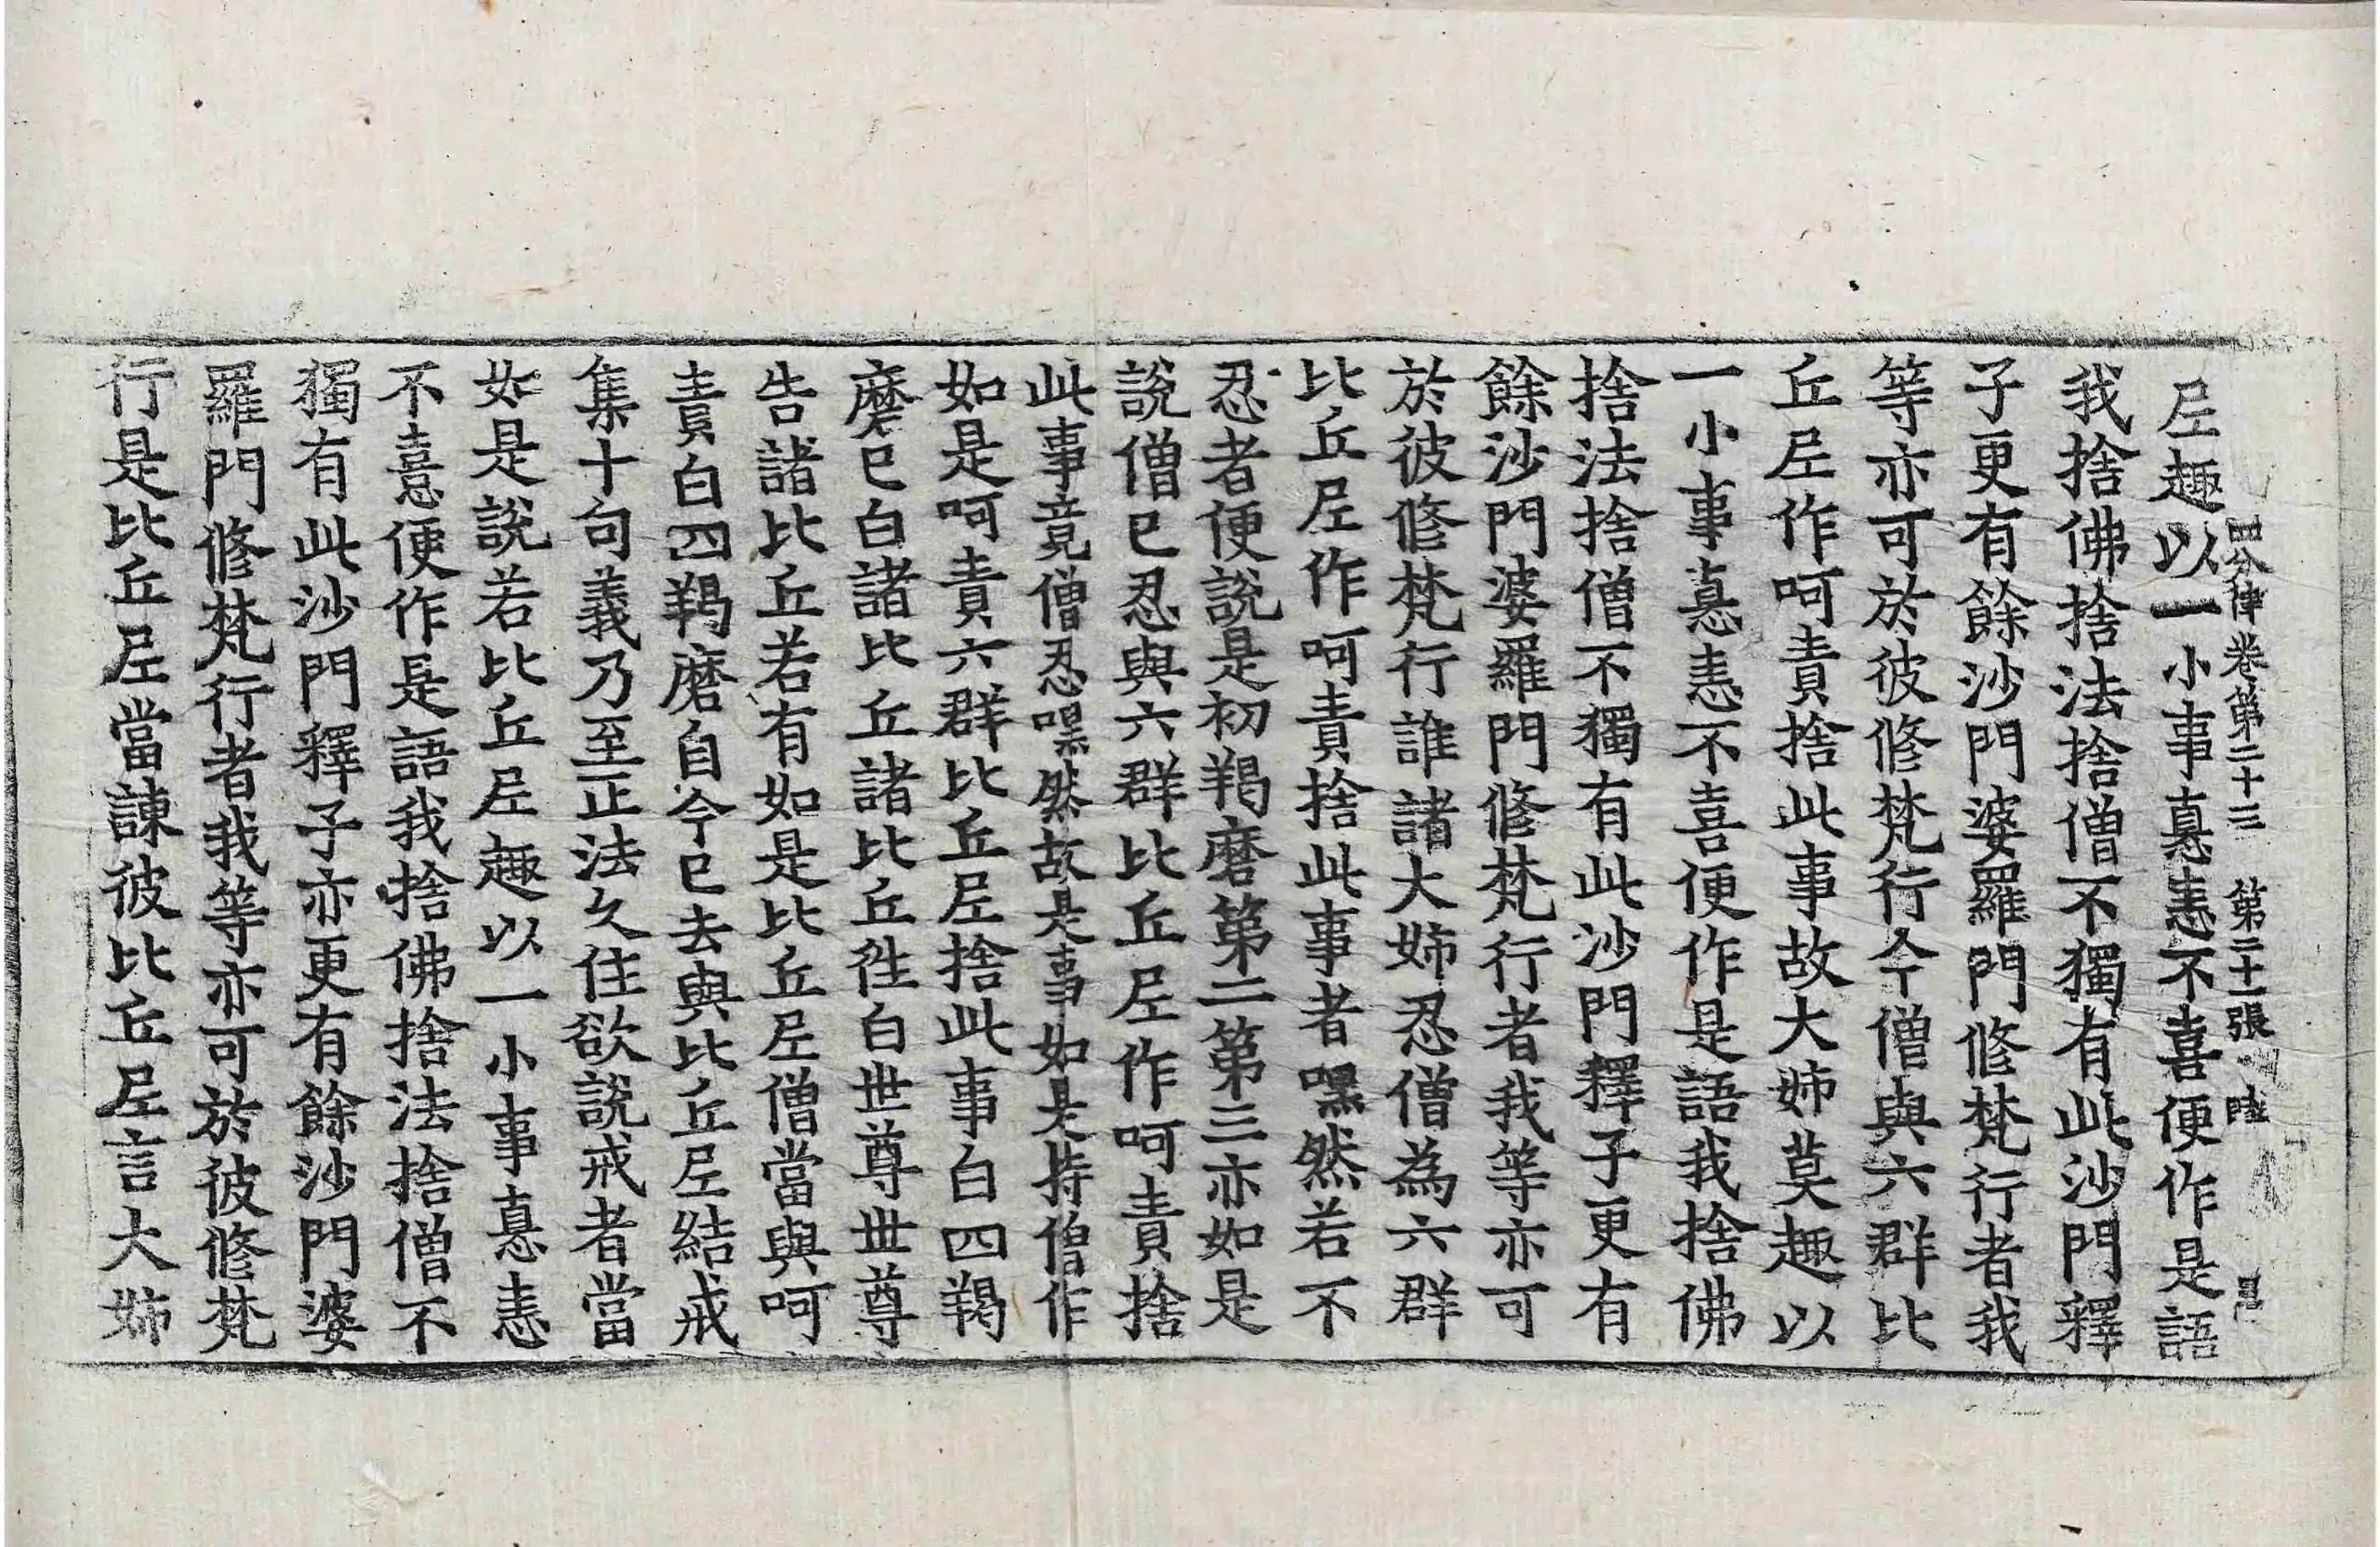 四分律卷第二十三 第二十一張 ꞏ
尼趣以一小事瞋恚不喜便作是語
我捨佛捨法捨僧不獨有此沙門釋
子更有餘沙門婆羅門修梵行者我
等亦可於彼修梵行今僧與六群比
丘尼作呵責捨此事故大姊莫趣以
一小事瞋恚不喜便作是語我捨佛
捨法捨僧不獨有此沙門釋子更有
餘沙門婆羅門修梵行者我等亦可
於彼修梵行誰諸大姊忍僧為六群
比丘尼作呵責捨此事者嘿然若不
忍者便說是初羯磨第二第三亦如是
說僧已忍與六群比丘尼作呵責捨
此事竟僧忍嘿然故是事如是持僧作
如是呵責六群比丘尼捨此事白四羯
磨已白諸比丘諸比丘往白世尊世尊
告諸比丘若有如是比丘尼僧當與呵
責白四羯磨自今已去與比丘尼結戒
集十句義乃至正法久住欲說戒者當
如是說若比丘尼趣以一小事瞋恚
不憙便作是語我捨佛捨法捨僧不
獨有此沙門釋子亦更有餘沙門婆
羅門修梵行者我等亦可於彼修梵
行是比丘尼當諫彼比丘尼言大姊